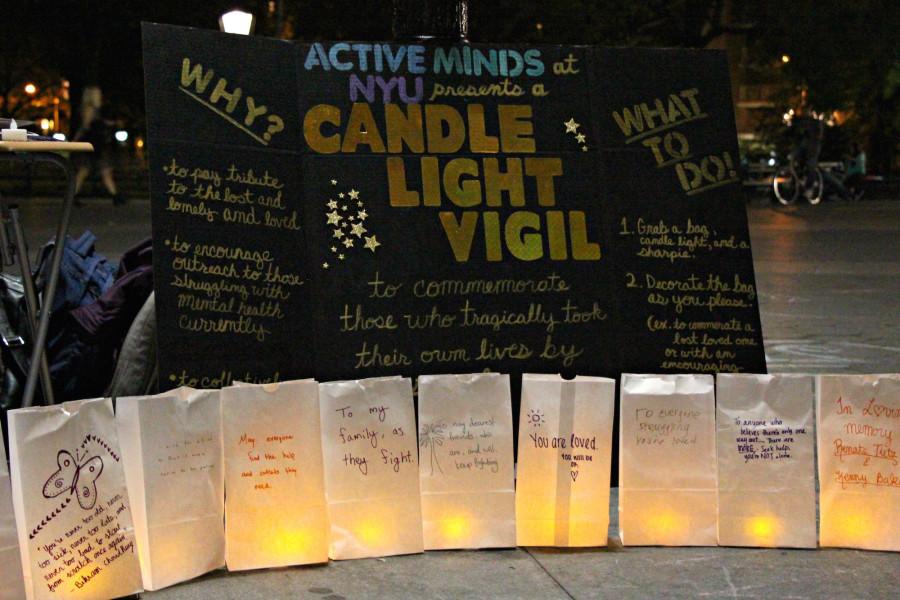 WHY?
•to pay tribute
to the lost and
lonely and loved
•to encourage
outreach to those
struggling with
mental health
currently
•to collectivel
ACTIVE MINDS at
NYU presents a
CANDLE
LIGHT
VIGIL
to commemorate
those who tragically took
their own lives by
WHAT
TO
DO!
1. Grab a bag,
candle light, and a
sharpie.
2. Decorate the bag
as you please.
(ex. to commerate a
lost loved one
or with an
encouraging
"You're never too old, never
too sick, never too late and
never too bad to start
from scratch once again"
-Bikram Choudhury
May everyone
find the help
and they
need.
To my
family, as
they fight.
my dearest
friends, who
are, and will
keep fighting
You are loved.
You will be
ok
To everyone
struggling
you're loved
To anyone who
believes there's only one
way out... There are
MORE. Seek help,
you're NOT alone.
In Loving
memory